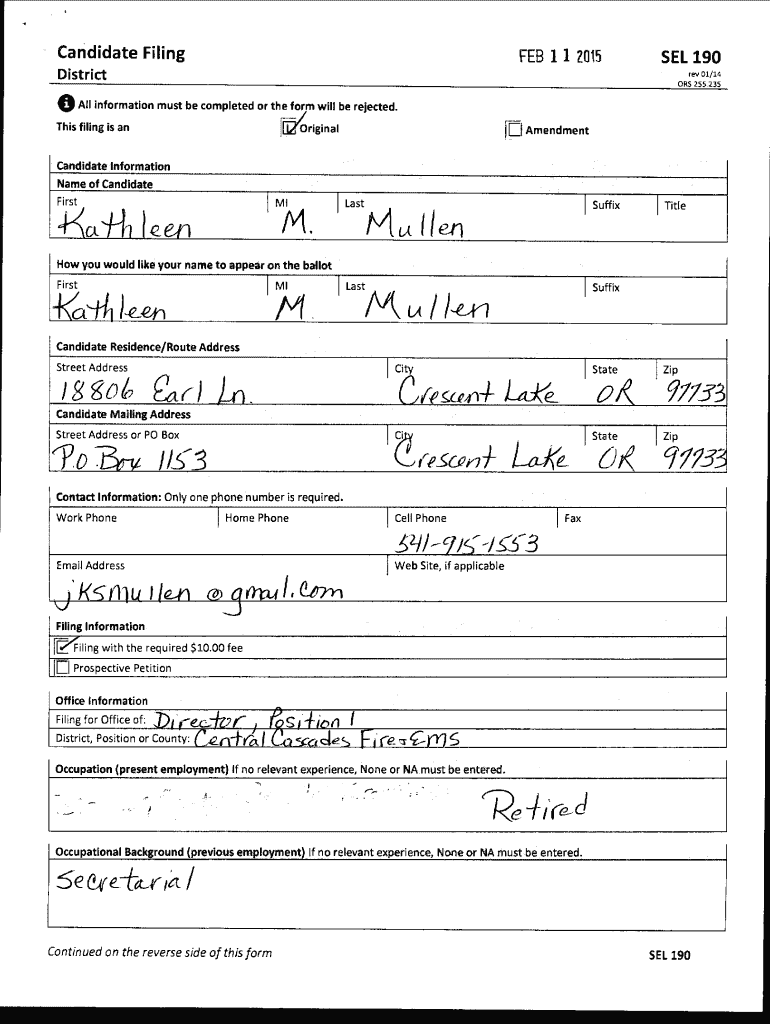 Candidate Filing FEB 11 2015 SEL 190
District rev 01/14
ORS 255.235
i All information must be completed or the form will be rejected.
This filing is an Original Amendment
Candidate Information
Name of Candidate
First MI Last Suffix Title
Kathleen M. Mullen
How you would like your name to appear on the ballot
First MI Last Suffix
Kathleen M. Mullen
Candidate Residence/Route Address
Street Address City State Zip
18806 Earl Ln. Crescent Lake OR 97733
Candidate Mailing Address
Street Address or PO Box City State Zip
P.O. Box 1153 Crescent Lake OR 97733
Contact Information: Only one phone number is required.
Work Phone Home Phone Cell Phone Fax
541-915-1553
Email Address Web Site, if applicable
jksmullen@gmail.com
Filing Information
Filing with the required $10.00 fee
Prospective Petition
Office Information
Filing for Office of: Director, Position 1
District, Position or County: Central Cascades Fire & EMS
Occupation (present employment) If no relevant experience, None or NA must be entered.
Retired
Occupational Background (previous employment) If no relevant experience, None or NA must be entered.
Secretarial
Continued on the reverse side of this form SEL 190